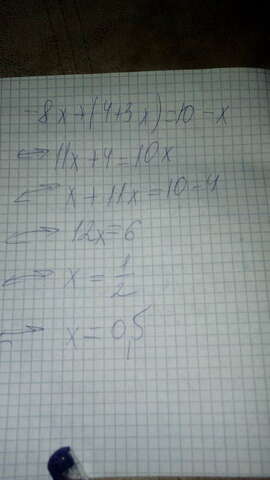 -8x+(4+3x)=10-x
⇔ 11x+4=10x
⇔ x+11x=10=4
⇔ 12x=6
⇔ x=1/2
⇔ x=0,5